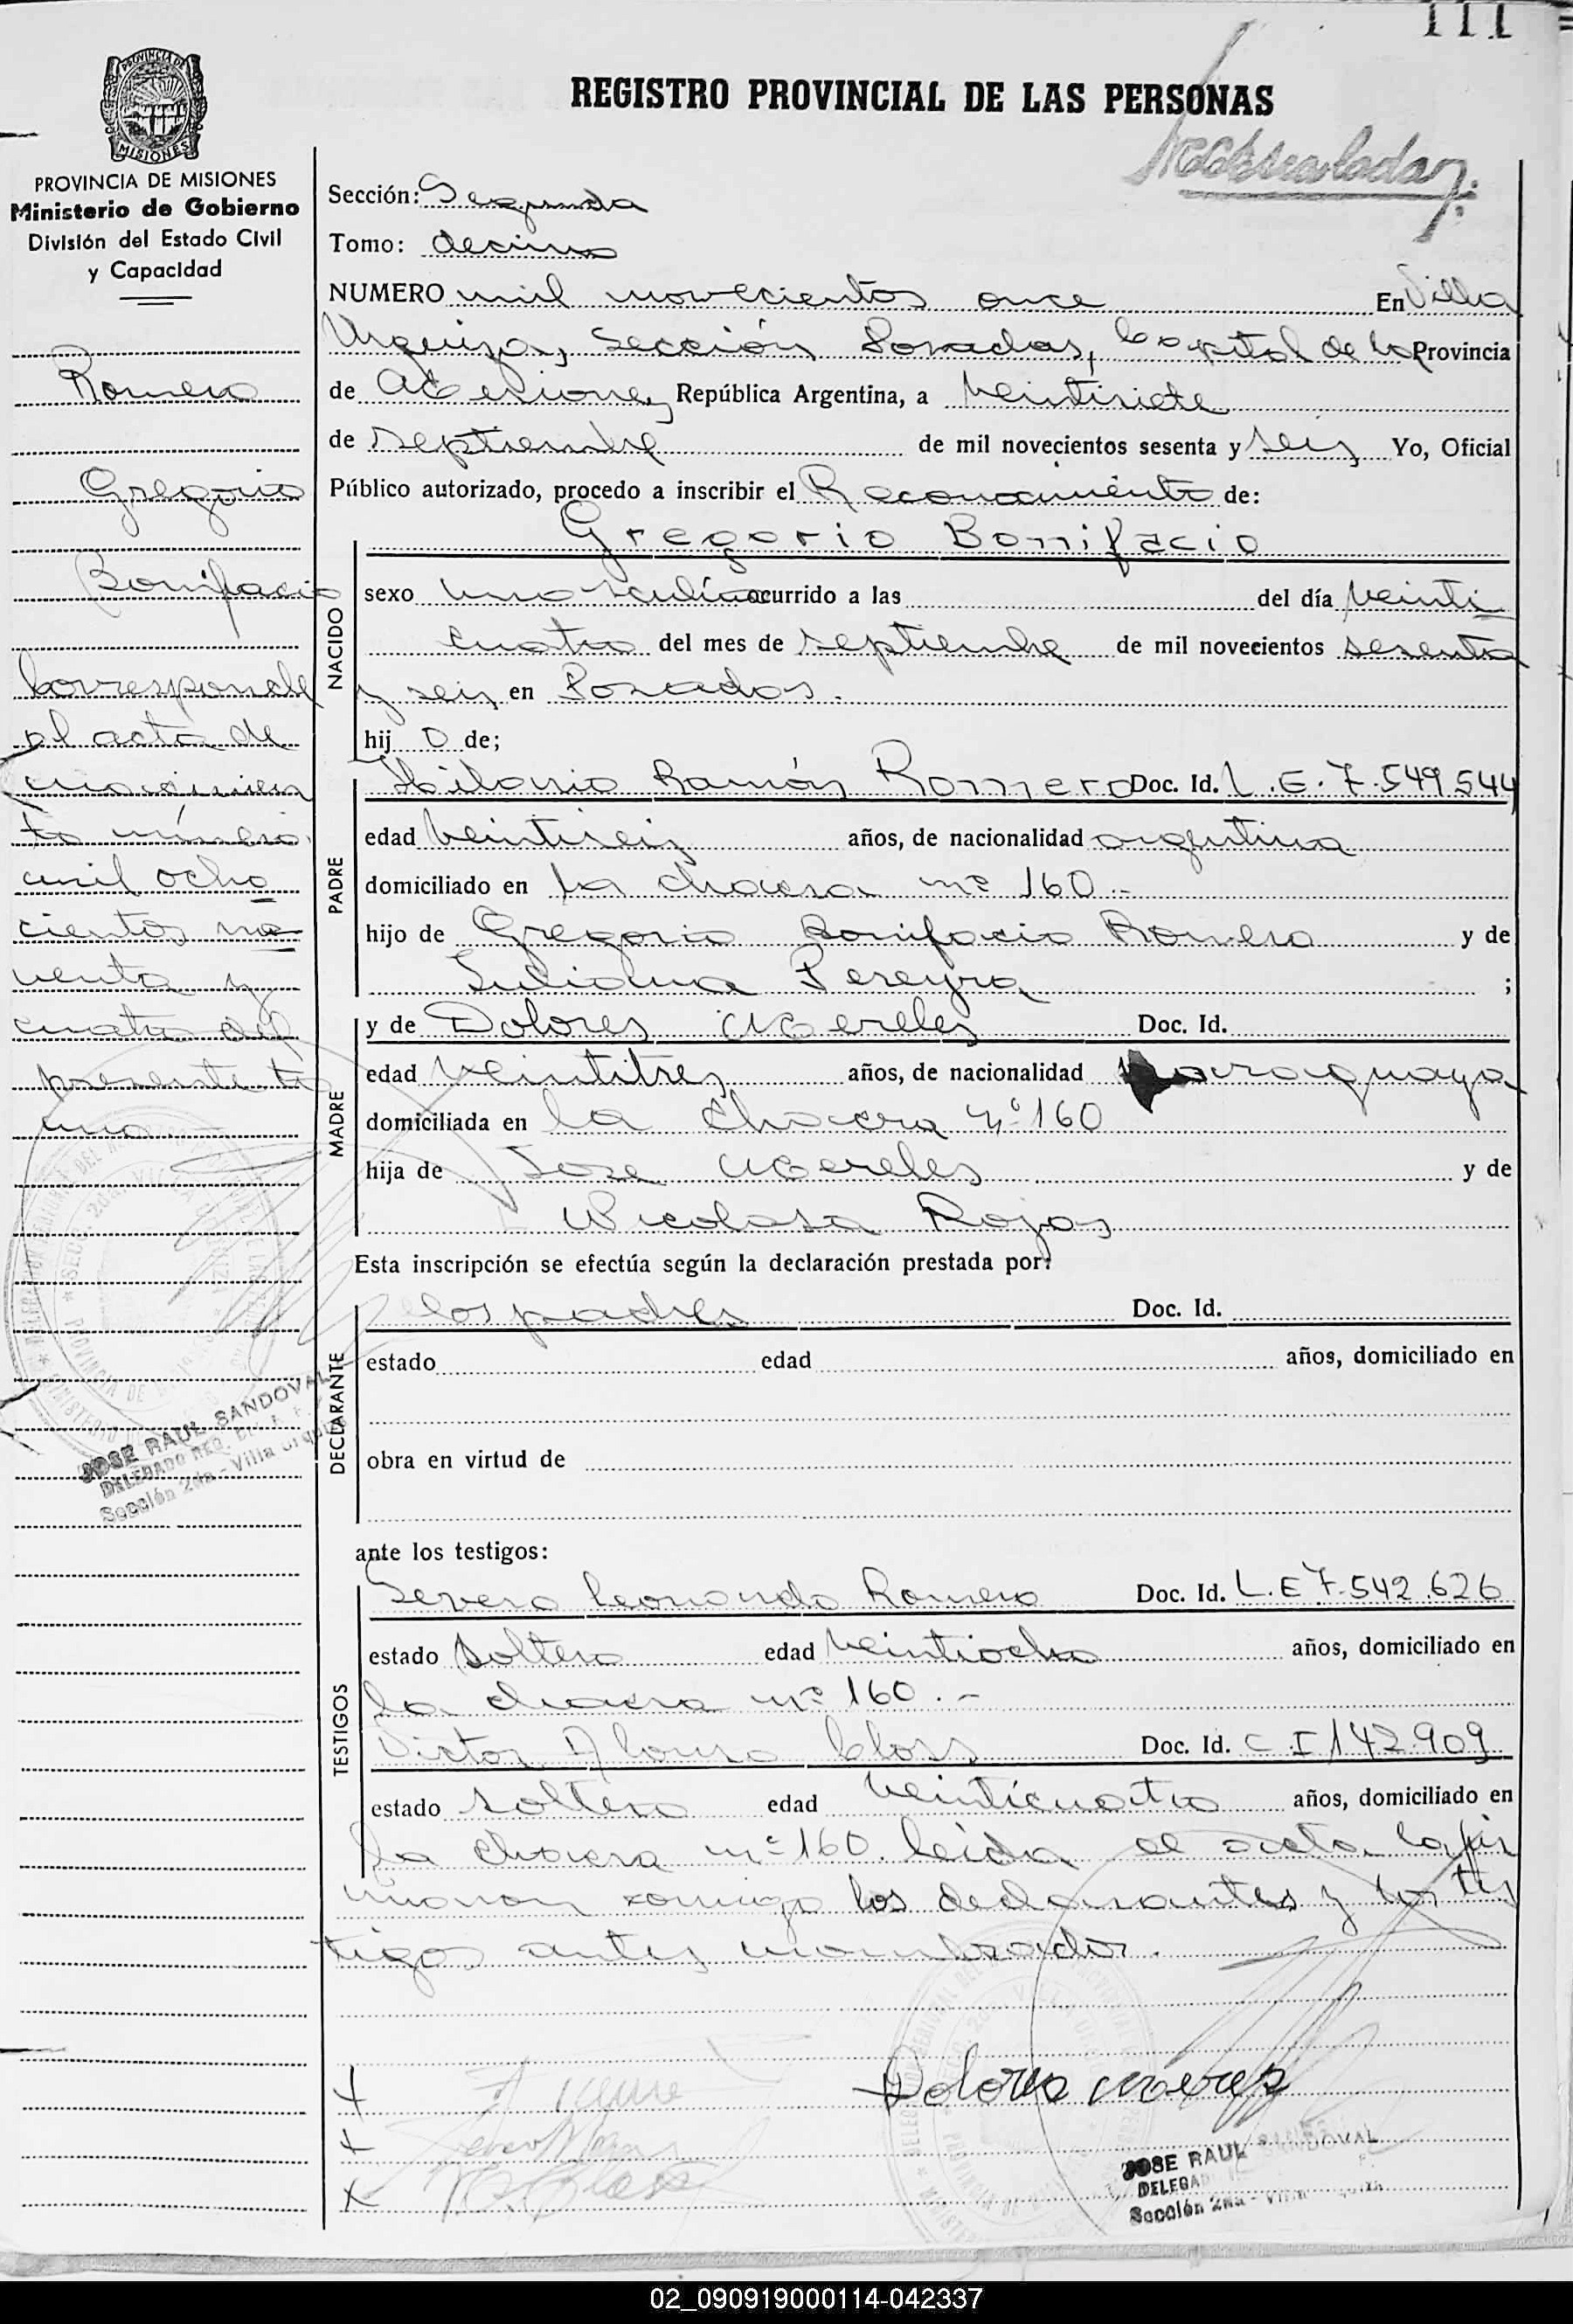 111
REGISTRO PROVINCIAL DE LAS PERSONAS
PROVINCIA DE MISIONES
Ministerio de Gobierno
División del Estado Civil
y Capacidad
Romero
Gregorio
Bonifacio
Corresponde
al acta de
nacimien
to número
mil ocho
cientos no
venta y
cuatro del
presente to
mo
JOSE RAUL SANDOVAL
DELEGADO REG.
Sección 2da - Villa Urquiza
Sección: Segunda
Tomo: decimo
NUMERO mil novecientos once En Villa
Urquiza, Sección Posadas, Capital de la Provincia
de Misiones, República Argentina, a veintisiete
de septiembre de mil novecientos sesenta y seis Yo, Oficial
Público autorizado, procedo a inscribir el Reconocimiento de:
Gregorio Bonifacio
NACIDO
sexo masculino ocurrido a las del día veinti
cuatro del mes de septiembre de mil novecientos sesenta
y seis en Posadas.
hij o de;
PADRE
Hilario Ramón Romero Doc. Id. L.E. 7.549.544
edad veintiseis años, de nacionalidad argentina
domiciliado en la chacra nº 160.-
hijo de Gregorio Bonifacio Romero y de
Juliana Pereyra ;
MADRE
y de Dolores Mereles Doc. Id.
edad veintitres años, de nacionalidad paraguaya
domiciliada en la chacra nº 160
hija de Jose Mereles y de
Nicolasa Rojas
Esta inscripción se efectúa según la declaración prestada por:
DECLARANTE
los padres Doc. Id.
estado edad años, domiciliado en
obra en virtud de
ante los testigos:
TESTIGOS
Severo Leonardo Romero Doc. Id. L.E 7.542.626
estado soltero edad veintiocho años, domiciliado en
la chacra nº 160.-
Victor Alonso Closs Doc. Id. C I 142.909
estado soltero edad veinticuatro años, domiciliado en
la chacra nº 160. leída el acta la fir
maron conmigo los declarantes y los tes
tigos antes nombrados.
Dolores
JOSE RAUL SANDOVAL
DELEGADO
Sección 2da -
02_090919000114-042337